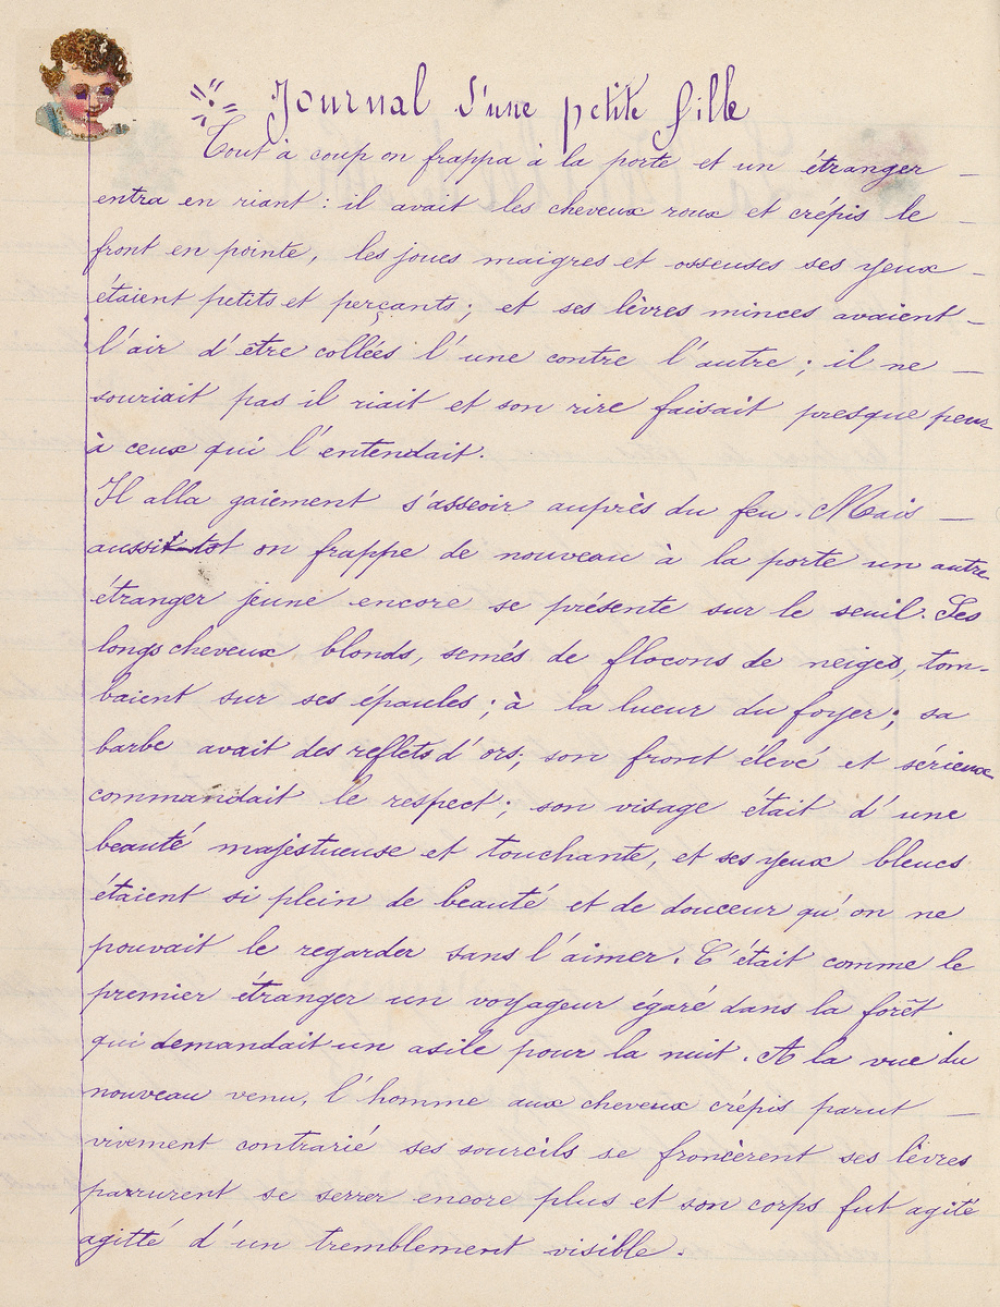 Journal d'une petite fille
Tout à coup on frappa à la porte et un étranger —
entra en riant : il avait les cheveux roux et crépis le —
front en pointe, les joues maigres et osseuses ses yeux —
étaient petits et perçants ; et ses lèvres minces avaient —
l'air d'être collées l'une contre l'autre ; il ne —
souriait pas il riait et son rire faisait presque peur
à ceux qui l'entendait.
Il alla gaiement s'asseoir auprès du feu. Mais —
aussitôt on frappe de nouveau à la porte un autre
étranger jeune encore se présente sur le seuil. Ses
longs cheveux blonds, semés de flocons de neiges, tom-
baient sur ses épaules ; à la lueur du foyer ; sa
barbe avait des reflets d'ors ; son front élevé et sérieux
commandait le respect ; son visage était d'une
beauté majestueuse et touchante, et ses yeux bleues
étaient si plein de beauté et de douceur qu'on ne
pouvait le regarder sans l'aimer. C'était comme le
premier étranger un voyageur égaré dans la forêt
qui demandait un asile pour la nuit. A la vue du
nouveau venu, l'homme aux cheveux crépis parut —
vivement contrarié ses sourcils se froncèrent ses lèvres
parrurent se serrer encore plus et son corps fut agité
agitté d'un tremblement visible.